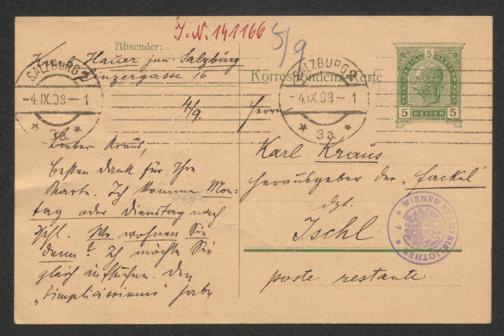 J.N. 141166
5/9
Absender:
Karl Hauer jun Salzburg
Linzergasse 16
Korrespondenz-Karte
SALZBURG 2
-4.IX.08-1
* 3a *
SALZBURG 2
-4.IX.08-1
* 3a *
5
5 HELLER 5
4/9.
Lieber Kraus,
besten Dank für Ihre
Karte. Ich komme Mon-
tag oder Dienstag nach
Ischl. Wo wohnen Sie
denn? Ich möchte Sie
gleich aufsuchen. Den
„Simplicissimus" habe
Herrn
Karl Kraus
Herausgeber der „Fackel"
dzt.
Ischl
poste restante
WIENER STADTBIBLIOTHEK